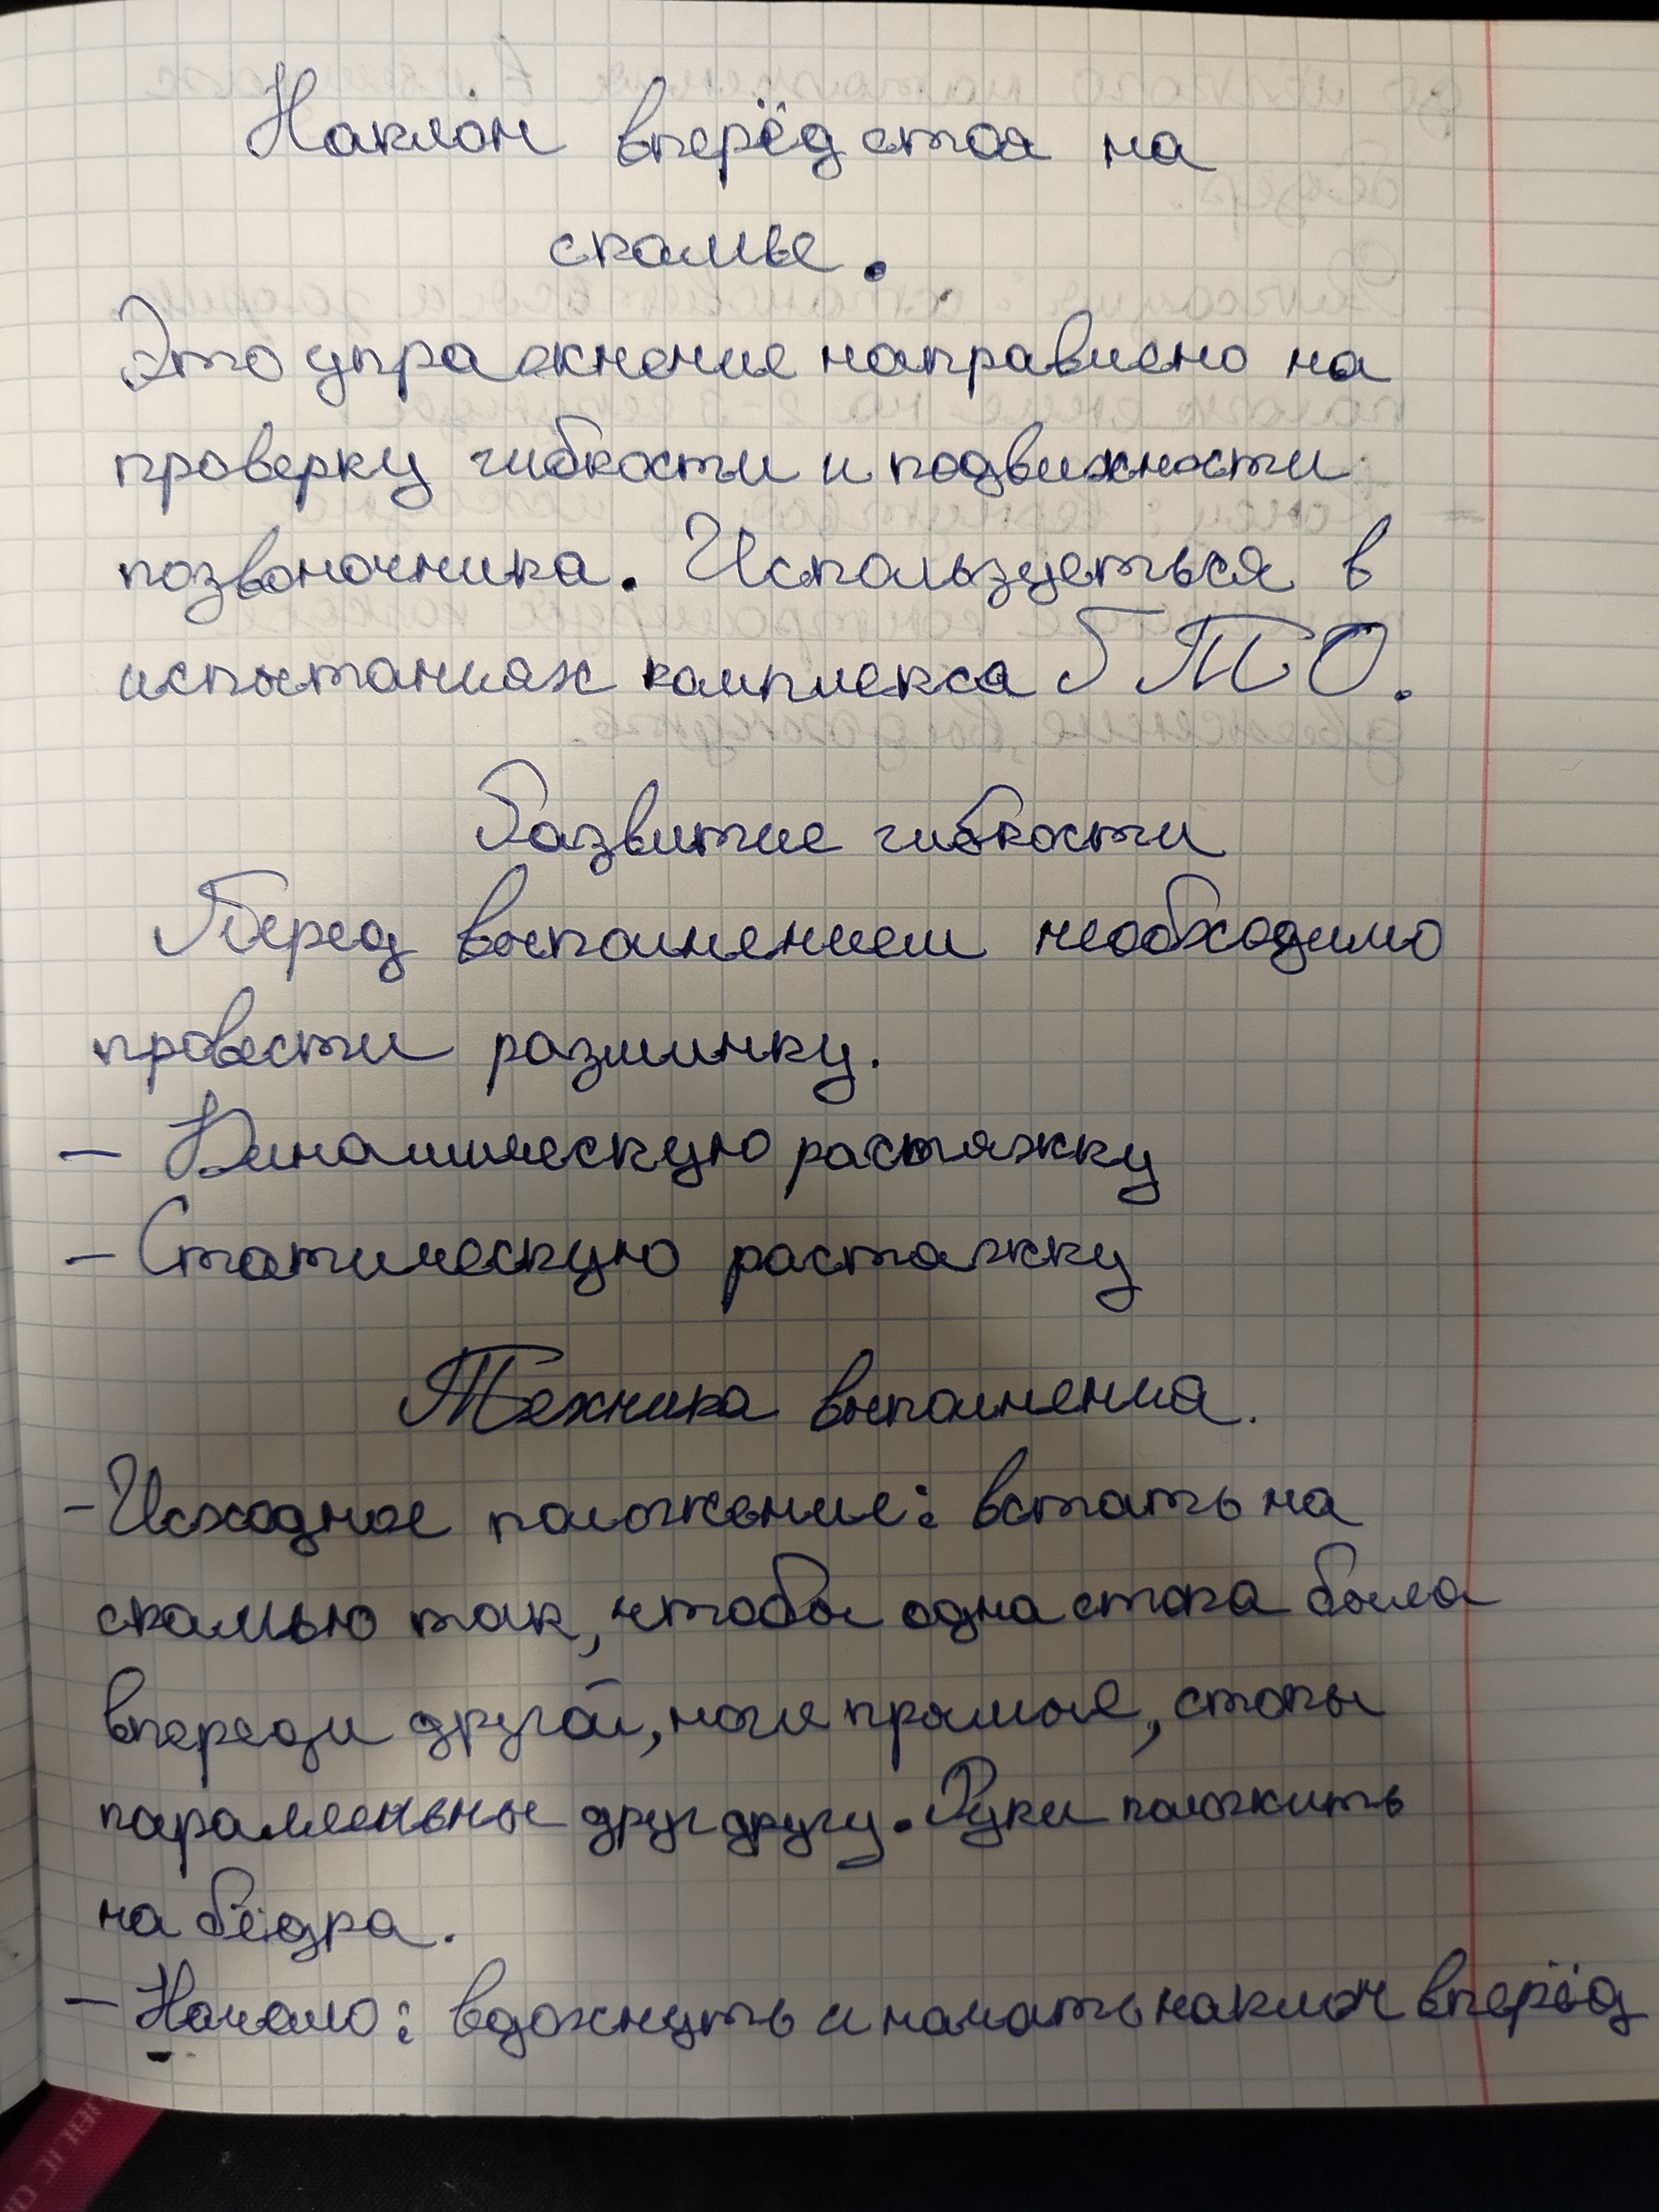 Наклон вперёд стоя на
скамье.
Это упражнение направлено на
проверку гибкости и подвижности
позвоночника. Используеться в
испытаниях комплекса ГТО.
Развитие гибкости
Перед выполнением необходимо
провести разминку.
– Динамическую растяжку
– Статическую растяжку
Техника выполнения.
– Исходное положение: встать на
скамью так, чтобы одна стопа была
впереди другой, ноги прямые, стопы
параллельны друг другу. Руки положить
на бёдра.
– Начало: вдохнуть и начать наклон вперёд